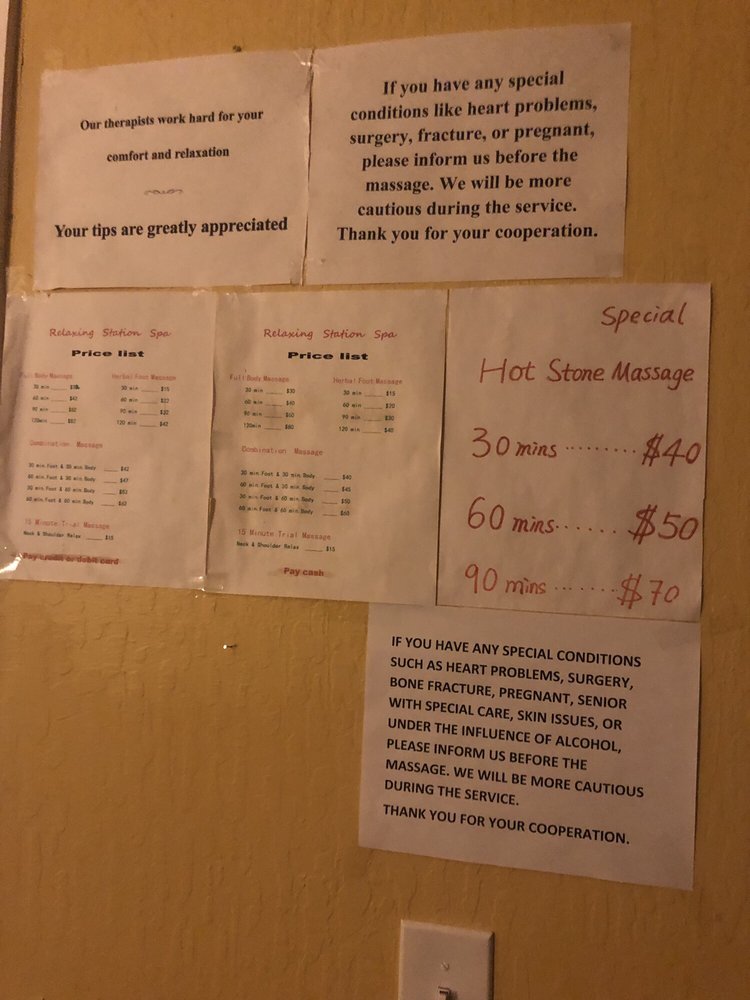 Our therapists work hard for your
comfort and relaxation
Your tips are greatly appreciated
If you have any special
conditions like heart problems,
surgery, fracture, or pregnant,
please inform us before the
massage. We will be more
cautious during the service.
Thank you for your cooperation.
Relaxing Station Spa
Price list
Full Body Massage
30 min
60 min $42
90 min $62
120min $82
Herbal Foot Massage
30 min $15
60 min $22
90 min $32
120 min $42
Combination Massage
30 min Foot & 30 min Body $42
60 min Foot & 30 min Body $47
30 min Foot & 60 min Body $52
60 min Foot & 60 min Body $62
15 Minute Trial Massage
Neck & Shoulder Relax $15
Pay credit or debit card
Relaxing Station Spa
Price list
Full Body Massage
30 min $30
60 min $40
90 min $60
120min $80
Herbal Foot Massage
30 min $15
60 min $20
90 min $30
120 min $40
Combination Massage
30 min Foot & 30 min Body $40
60 min Foot & 30 min Body $45
30 min Foot & 60 min Body $50
60 min Foot & 60 min Body $60
15 Minute Trial Massage
Neck & Shoulder Relax $15
Pay cash
Special
Hot Stone Massage
30 mins ........ $40
60 mins ...... $50
90 mins ...... $70
IF YOU HAVE ANY SPECIAL CONDITIONS
SUCH AS HEART PROBLEMS, SURGERY,
BONE FRACTURE, PREGNANT, SENIOR
WITH SPECIAL CARE, SKIN ISSUES, OR
UNDER THE INFLUENCE OF ALCOHOL,
PLEASE INFORM US BEFORE THE
MASSAGE. WE WILL BE MORE CAUTIOUS
DURING THE SERVICE.
THANK YOU FOR YOUR COOPERATION.